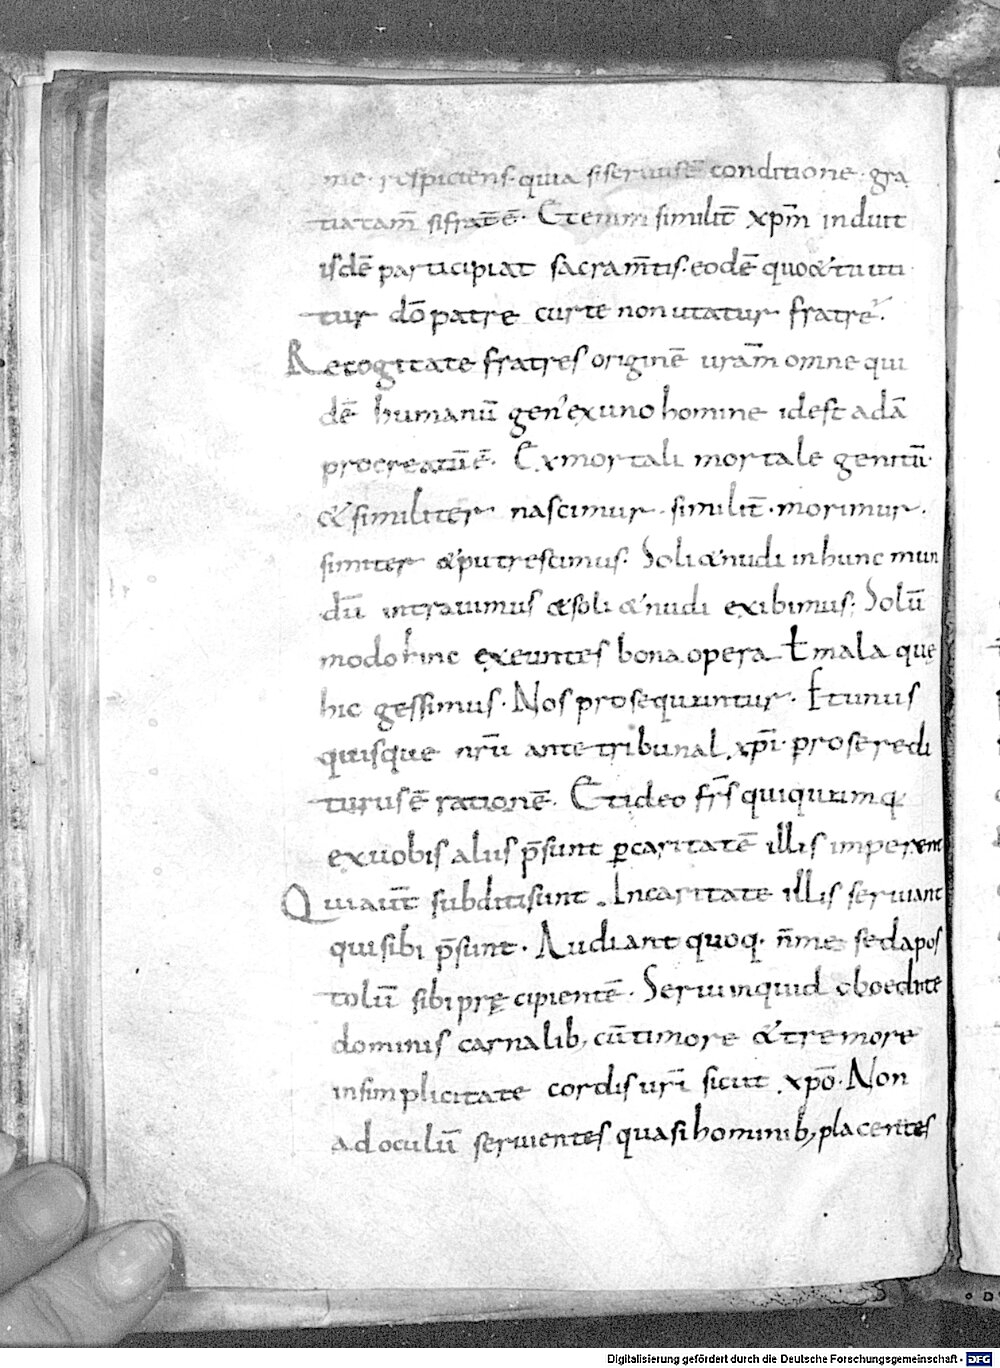 me· respiciens· quia si seruus ē conditione· gra
tia tam̄ si frat̄ ē· Etenim similit̄ xp̄m induit
isdē participiat sacram̄tis· eodē quo & tu uti
tur dō patre cur te non utatur fratrē·
Recogitate fratres originē uram̄ omne qui
dē humanū gen' ex uno homine id est adā
procreatū ē· Ex mortali mortale genitū·
& similiter nascimur· similit̄· morimur·
simiter & putrescimus· Soli & nudi in hunc mun
dū intrauimus & soli & nudi exibimus; Solū
modo hinc exeuntes bona opera ł mala quę
hic gessimus· Nos prosequuntur· Et unus
quisque nr̄ū ante tribunal xp̄i· pro se redi
turus ē rationē· Et ideo fr̄s quiqumq·
ex uobis alus p̄sunt ꝑ caritatē illis imperent
Qui aut̄ subditi sunt· In caritate illis seruiant
qui sibi p̄sunt· Audiant quoq· n̄ me sed apos
tolū sibi pręcipientē· Serui inquid oboedite
dominis carnalib; cū timore & tremore
in simplicitate cordis ur̄i sicut xp̄o· Non
ad oculū seruientes quasi hominib; placentes
Digitalisierung gefördert durch die Deutsche Forschungsgemeinschaft - DFG